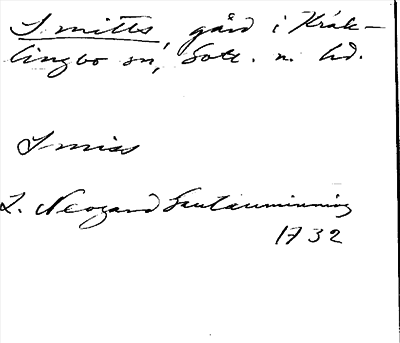 Smitts, gård i Kräk-
lingbo sn, Gotl. n. hd.
Smiss
L. Neogard Gautauminning
1732